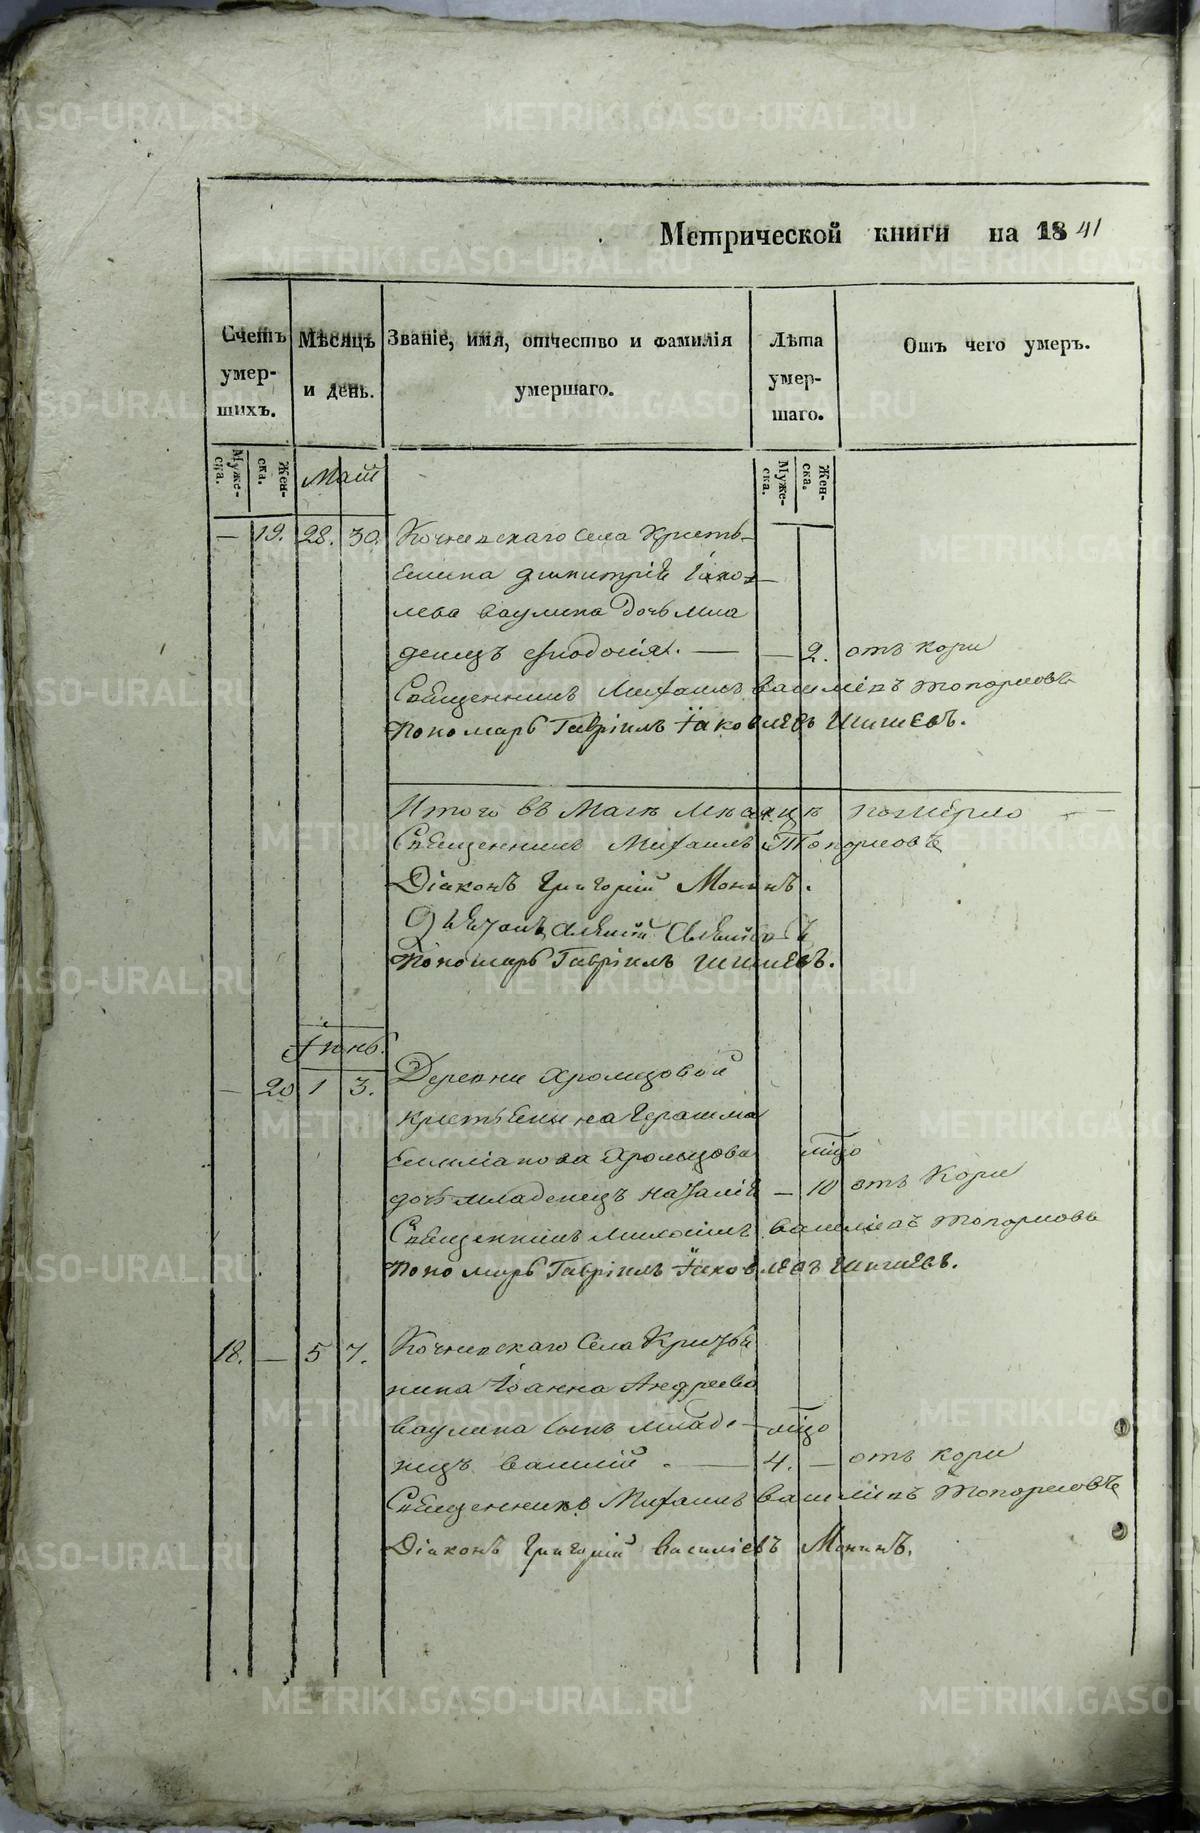 Метрической книги на 1841
Счетъ умер-шихъ.
Мѣсяцъ и день.
Званіе, имя, отчество и фамилія умершаго.
Лѣта умер-шаго.
Отъ чего умеръ.
Муже-ска.
Жен-ска.
Маій
Муже-ска.
Жен-ска.
— 19. 28. 30. Кочневскаго села Кресть-
енина Димитрія Іяков-
лева Ваулина дочь мла
денецъ Феодосія. — — 2. отъ кори
Священникъ Михаилъ Василіевъ Топорковъ
Пономарь Гавріилъ Іаковлевъ Шишевъ.
Итого въ Маіѣ мѣсяцѣ померло —
Священникъ Михаилъ Топорковъ
Діаконъ Григорій Монинъ.
Дьячокъ Алексій
Пономарь Гавріилъ Шишевъ.
Іюнь.
— 20 1 3. Деревни Хромцовой
крестьенина Герасима
Емиліанова Хромцова мѣцо
дочь младенецъ Наталія — 10 отъ кори
Священникъ Михаилъ Василіевъ Топорковъ
Пономарь Гавріилъ Іаковлевъ Шишевъ.
18. — 5 7. Кочневскаго Села Крестье
нина Іоанна Андреева
Ваулина сынъ младе- мѣцо
нецъ Василій. — 4. — отъ кори
Священникъ Михаилъ Василіевъ Топорковъ
Діаконъ Григорій Василіевъ Монинъ.
METRIKI.GASO-URAL.RU